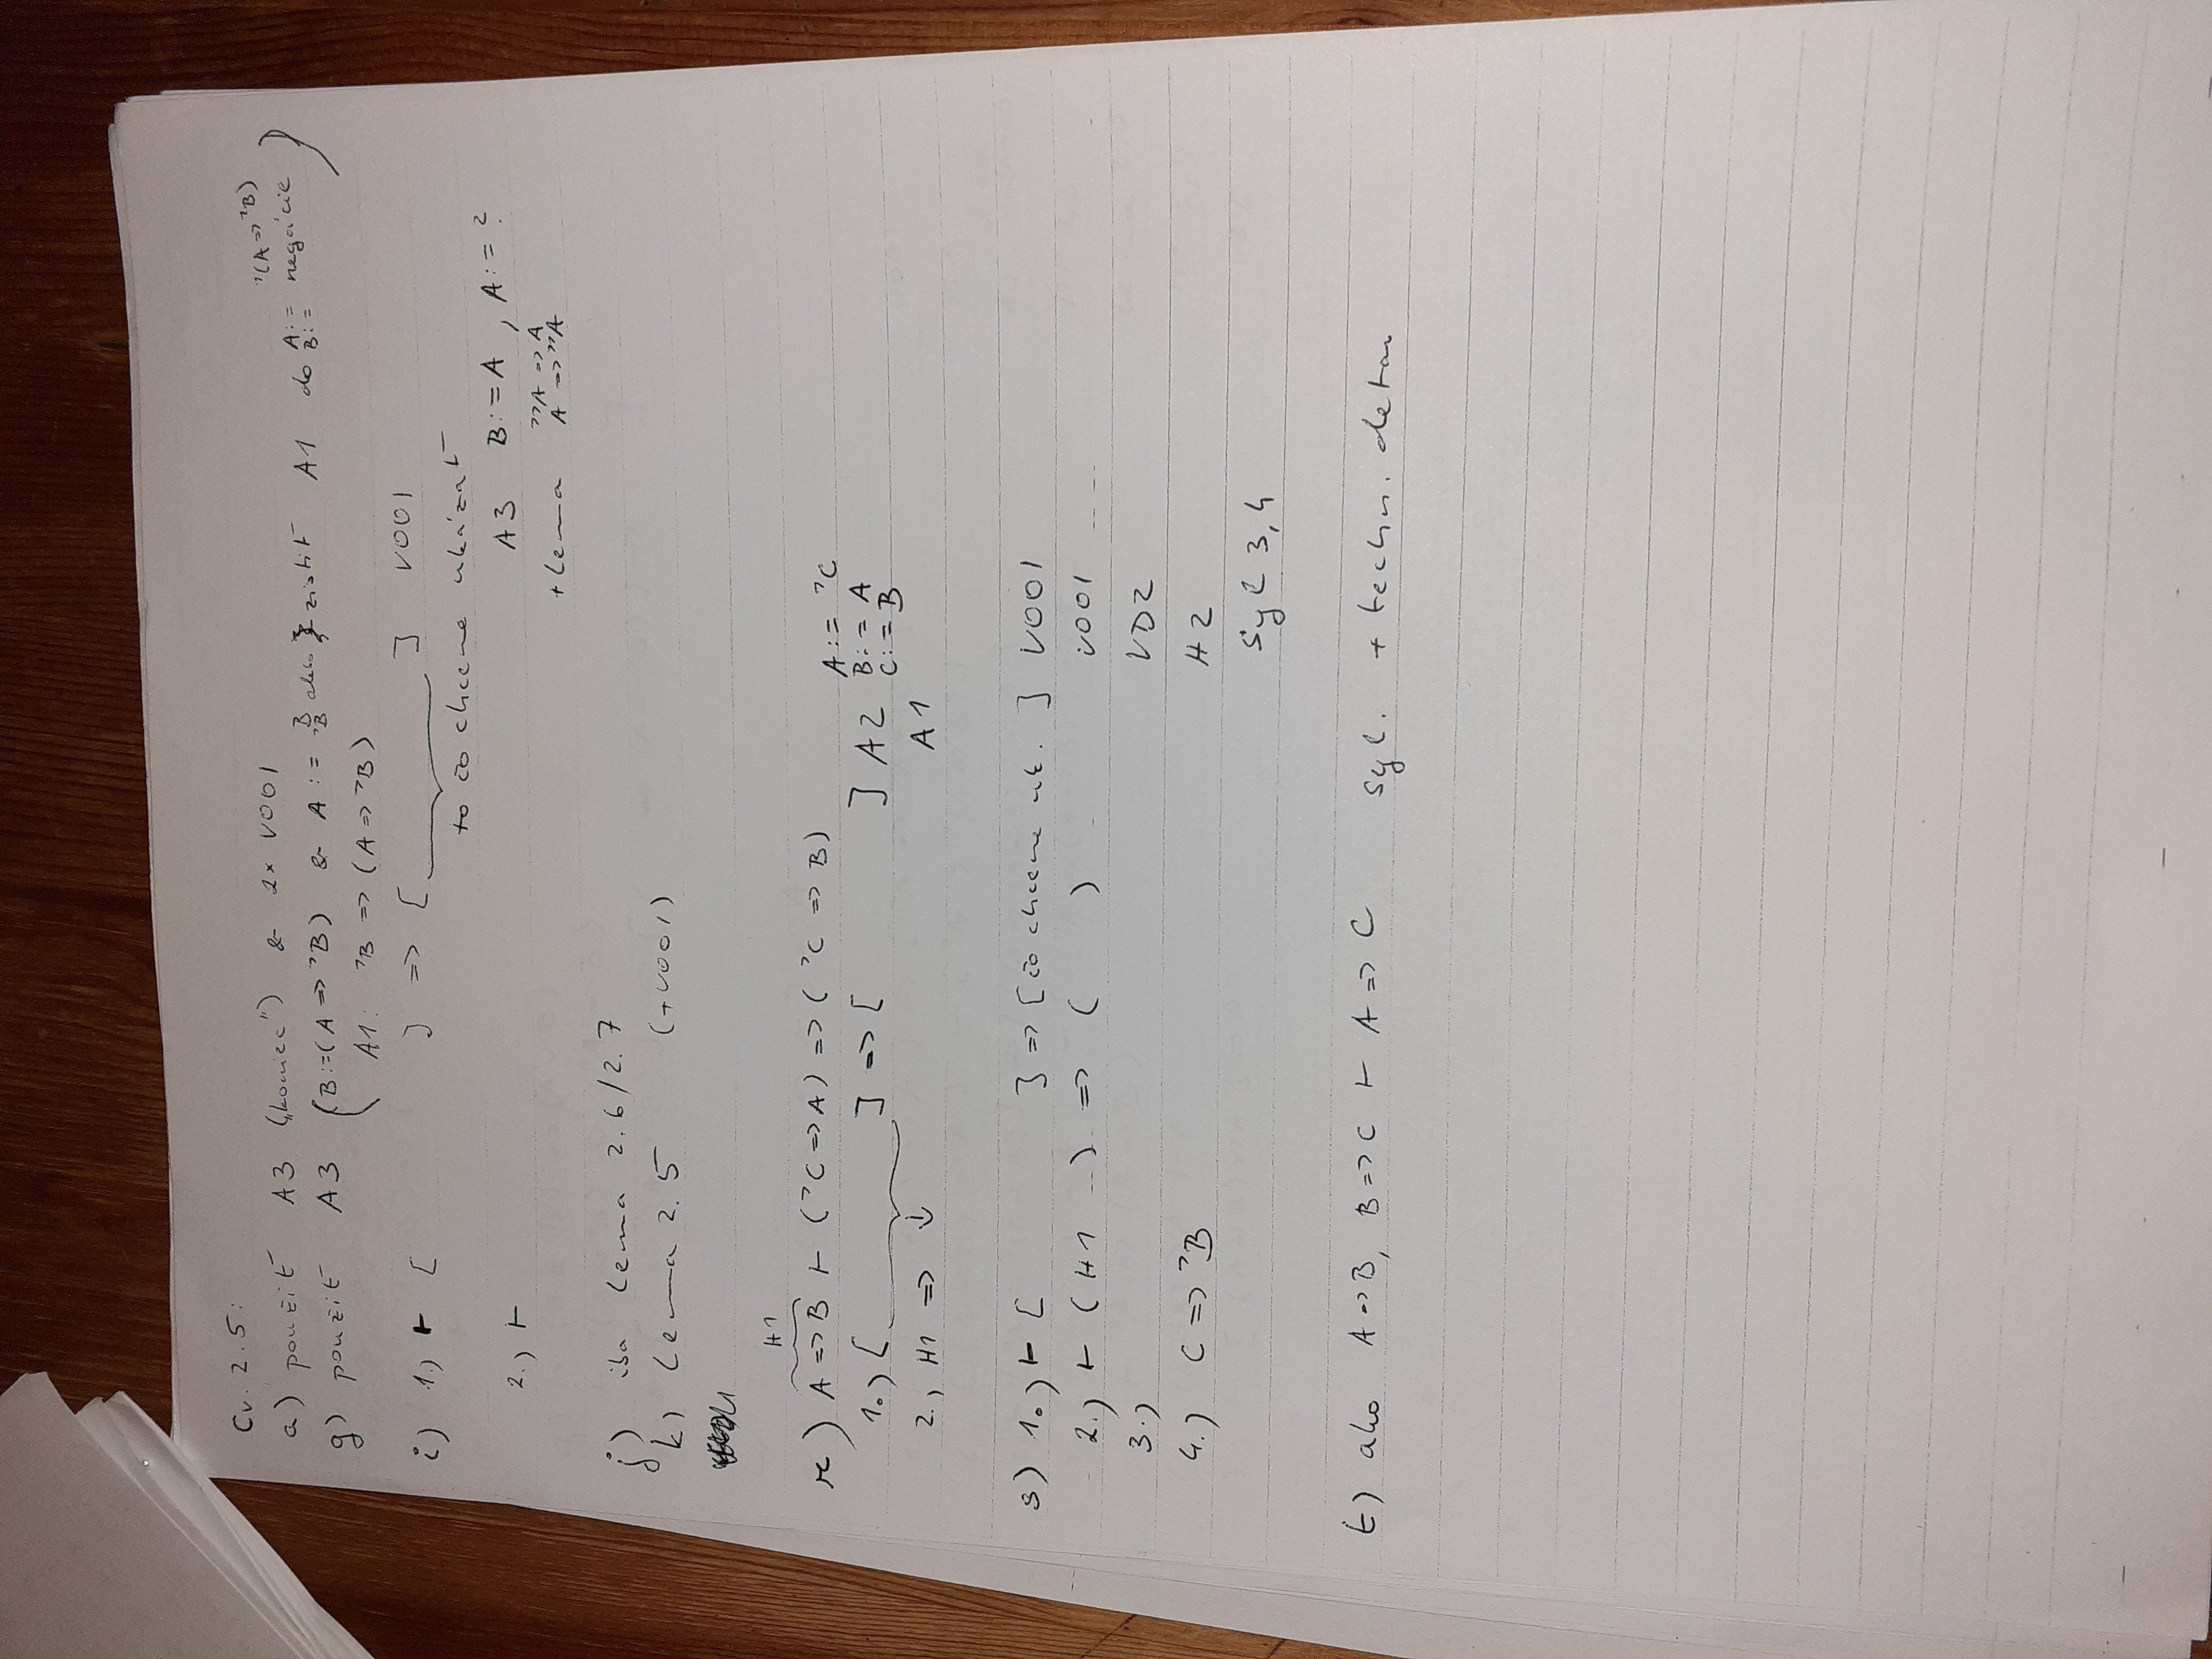 Cv. 2.5:
a) použiť A3 („koniec") & 2x VOOI
g) použiť A3 (B:=(A=>¬B) & A:= B alebo ¬B zistiť A1 do A:= ¬(A=>¬B)
B:= negácie )
A1: ¬B => (A=>¬B)
i) 1.) ⊢ [ ] => [ ] VOOI
to čo chceme ukázať
2.) ⊢ A3 B:=A, A:=?
+lema ¬¬A => A
A => ¬¬A
j) iba lema 2.6/2.7
k) lema 2.5 (+VOOI)
H1
r) A=>B ⊢ (¬C=>A) => (¬C=>B)
1.) [ ] => [ ] A2 A:= ¬C
B:= A
C:= B
2.) H1 => ↓ A1
s) 1.) ⊢ [ ] => [čo chceme uk.] VOOI
2.) ⊢ (H1 --) => ( ) VOOI ----
3.) VD2
4.) C => ¬B H2
Syl 3,4
t) ako A=>B, B=>C ⊢ A=>C Syl. + techn. detaily